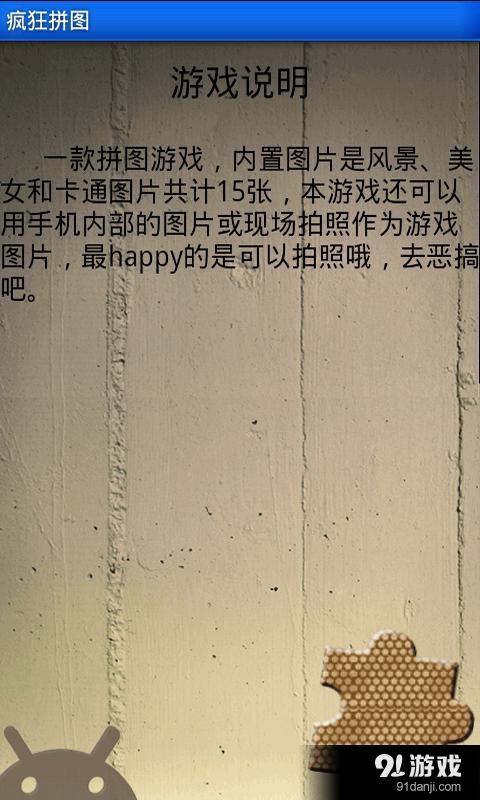 疯狂拼图
游戏说明
一款拼图游戏，内置图片是风景、美
女和卡通图片共计15张，本游戏还可以
用手机内部的图片或现场拍照作为游戏
图片，最happy的是可以拍照哦，去恶搞
吧。
91游戏
91danji.com